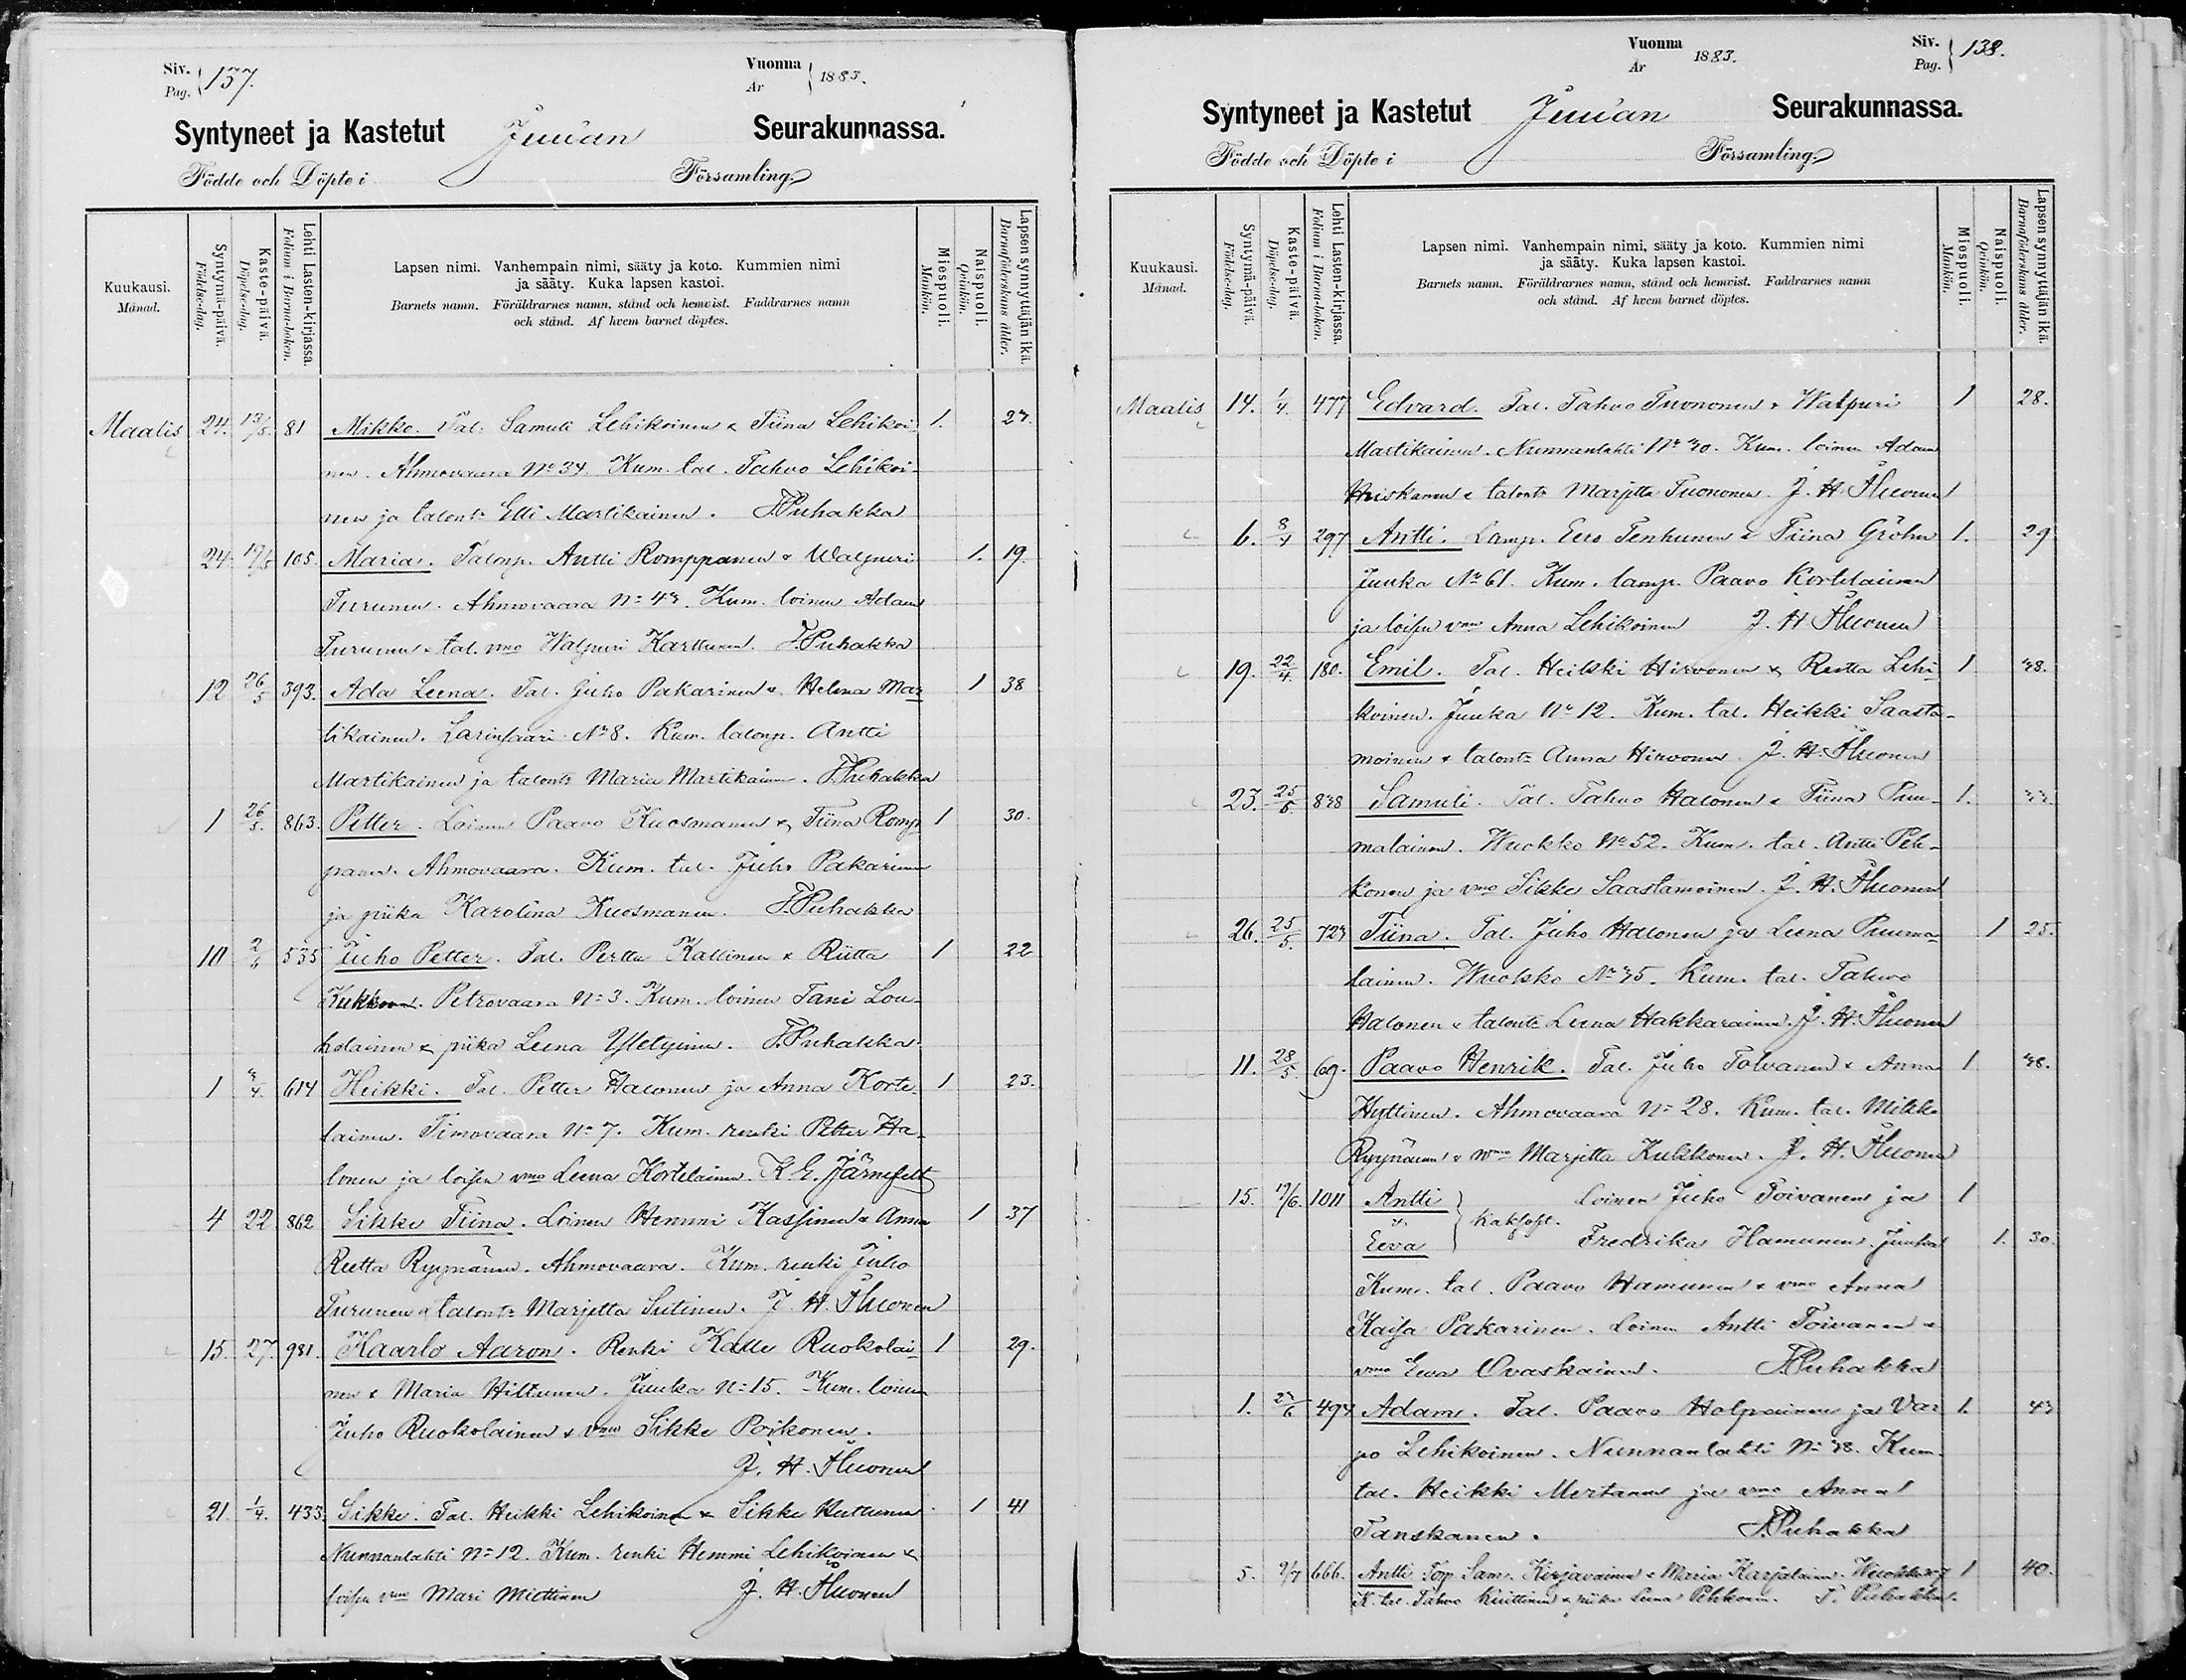 Siv. Pag. 137.
Vuonna År 1883.
Syntyneet ja Kastetut Juuan Seurakunnassa.
Födde och Döpte i Församling.
Kuukausi. Månad.
Syntymä-päivä. Födelse-dag.
Kaste-päivä. Döpelse-dag.
Lehti Lasten-kirjassa. Folium i Barna-boken.
Lapsen nimi. Vanhempain nimi, sääty ja koto. Kummien nimi
ja sääty. Kuka lapsen kastoi.
Barnets namn. Föräldrarnes namn, stånd och hemvist. Faddrarnes namn
och stånd. Af hvem barnet döptes.
Miespuoli. Mankön.
Naispuoli. Qvinkön.
Lapsen synnyttäjän ikä. Barnaföderskans ålder.
Maalis 24. 13/5. 81 Mikko. Tal. Samuli Lehikoinen & Tiina Lehikoi- 1. 27.
nen. Ahmovaara No 34. Kum. tal. Tahvo Lehikoi-
nen ja talontr Elli Martikainen. T. Puhakka
24. 19/5 105. Maria. Talonp. Antti Romppanen & Walpuri 1. 19.
Turunen. Ahmovaara No 43. Kum. loinen Adam
Turunen & tal. vmo Walpuri Karttunen. T. Puhakka
12 26/5 393. Ada Leena. Tal. Juho Pakarinen & Helena Mar- 1 38
tikainen. Larinsaari No 8. Kum. talonp. Antti
Martikainen ja talontr Maria Martikainen. T. Puhakka
1 26/5. 863. Petter. Loinen Paavo Kuosmanen & Tiina Romp- 1 30.
panen. Ahmovaara. Kum. tal. Juho Pakarinen
ja piika Karolina Kuosmanen. T. Puhakka
10 2/6 535 Juho Petter. Tal. Perttu Kallinen & Riitta 1 22
Kukkonen. Petrovaara No 3. Kum. loinen Tani Lou-
helainen & piika Leena Yletyinen. T. Puhakka.
1 3/4. 614 Heikki. Tal. Petter Halonen ja Anna Korte- 1 23.
lainen. Timovaara No 7. Kum. renki Petter Ha-
lonen ja loisen vmo Leena Kortelainen. K. E. Järnefelt
4 22 862 Sikke Tiina. Loinen Hemmi Kassinen & Anna 1 37
Reetta Ryynänen. Ahmovaara. Kum. renki Juho
Turunen & talontr Marjetta Sutinen. J. H. Åhuonen
15. 27. 981. Kaarlo Aaron. Renki Kalle Ruokolai- 1 29.
nen & Maria Hiltunen. Juuka No 15. Kum. loinen
Juho Ruokolainen & vmo Sikke Poikonen.
J. H. Åhuonen
21. 1/4. 433. Sikke. Tal. Heikki Lehikoinen & Sikke Huttunen 1 41
Nunnanlahti No 12. Kum. renki Hemmi Lehikoinen &
loisen vmo Mari Miettinen J. H. Åhuonen
Vuonna År 1883.
Siv. Pag. 138.
Syntyneet ja Kastetut Juuan Seurakunnassa.
Födde och Döpte i Församling.
Kuukausi. Månad.
Syntymä-päivä. Födelse-dag.
Kaste-päivä. Döpelse-dag.
Lehti Lasten-kirjassa. Folium i Barna-boken.
Lapsen nimi. Vanhempain nimi, sääty ja koto. Kummien nimi
ja sääty. Kuka lapsen kastoi.
Barnets namn. Föräldrarnes namn, stånd och hemvist. Faddrarnes namn
och stånd. Af hvem barnet döptes.
Miespuoli. Mankön.
Naispuoli. Qvinkön.
Lapsen synnyttäjän ikä. Barnaföderskans ålder.
Maalis 14. 1/4. 477 Edvard. Tal. Tahvo Tuononen & Walpuri 1 28.
Martikainen. Nunnanlahti No 30. Kum. loinen Adam
Hiiskanen & talontr Marjetta Tuononen. J. H. Åhuonen
6. 8/4 297 Antti. Lamp. Eero Tenhunen & Tiina Gröhn 1. 29
Juuka No 61. Kum. lamp. Paavo Kortelainen
ja loisen vmo Anna Lehikoinen J. H. Åhuonen
19. 22/4 180. Emil. Tal. Heikki Hirvonen & Reetta Lehi- 1 38.
koinen. Juuka No 12. Kum. tal. Heikki Saasta-
moinen & talontr Anna Hirvonen. J. H. Åhuonen
23. 25/5. 838 Samuli. Tal. Tahvo Halonen & Tiina Puu- 1. 33
malainen. Wuokko No 52. Kum. tal. Antti Peh-
konen ja vmo Sikke Saastamoinen. J. H. Åhuonen
26. 25/5. 723 Tiina. Tal. Juho Halonen ja Leena Puuma- 1 25.
lainen. Wuokko No 35. Kum. tal. Tahvo
Halonen & talontr Leena Hakkarainen. J. H. Åhuonen
11. 28/5. 69. Paavo Henrik. Tal. Juho Tolvanen & Anna 1 38.
Hyttinen. Ahmovaara No 28. Kum. tal. Mikko
Ryynänen & vmo Marjetta Kukkonen. J. H. Åhuonen
15. 19/6. 1011 Antti Loinen Juho Toivanen ja 1
& kaksoset.
Eeva Fredrika Hamunen. Juuka 1. 30.
Kum. tal. Paavo Hamunen & vmo Anna
Kaisa Pakarinen. Loinen Antti Toivanen &
vmo Eewa Ovaskainen. T. Puhakka
1. 23/6 494 Adam. Tal. Paavo Holpainen ja Var- 1. 43
po Lehikoinen. Nunnanlahti No 38. Kum.
tal. Heikki Mertanen ja vmo Anna
Tanskanen. T. Puhakka
5. 9/7 666. Antti Tp. Sam. Kirjavainen & Maria Karjalainen. Wuokko 7 1 40.
K. tal. Tahvo Kuittinen & piika Leena Pehkonen. T. Puhakka.